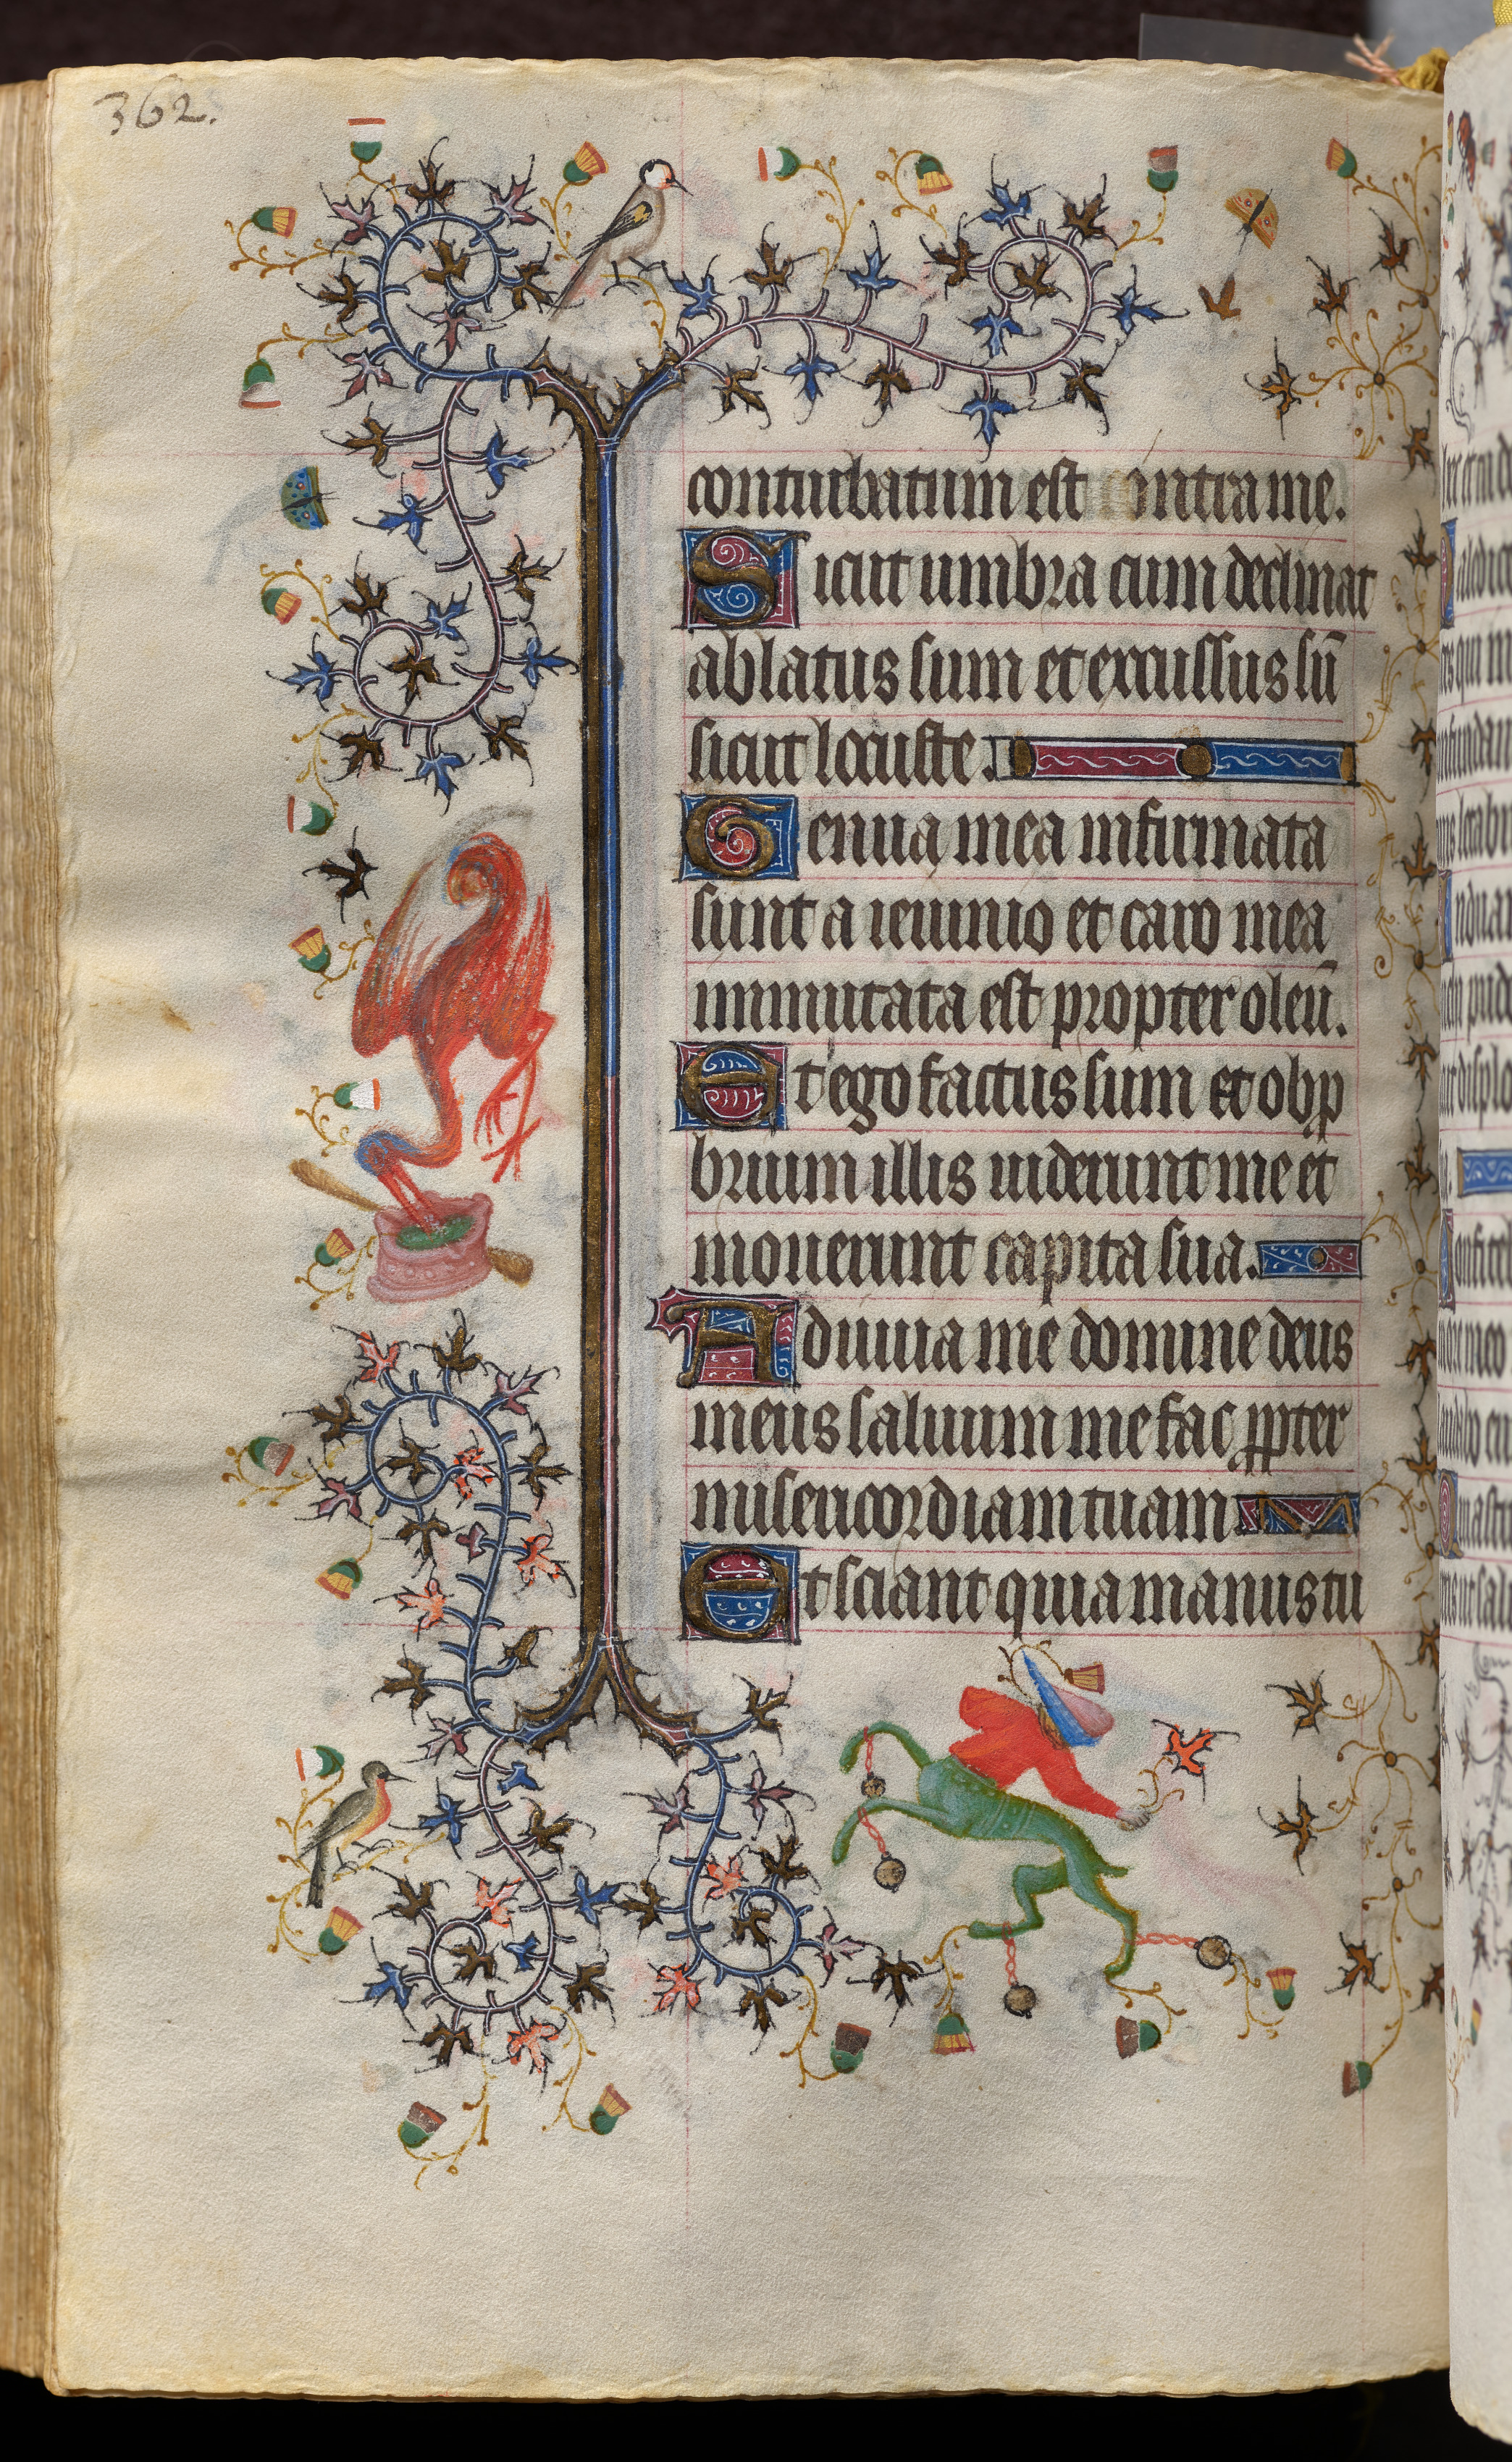 362.
conturbatum est intra me.
Sicut umbra cum declinat
ablatus sum et excussus sū
sicut locuste.
Genua mea infirmata
sunt a ieiunio et caro mea
immutata est propter oleū.
Et ego factus sum et obꝓ
brium illis uiderunt me et
mouerunt capita sua.
Adiuua me domine deus
meus saluum me fac ꝓpter
misericordiam tuam
Et sciant quia manus tu